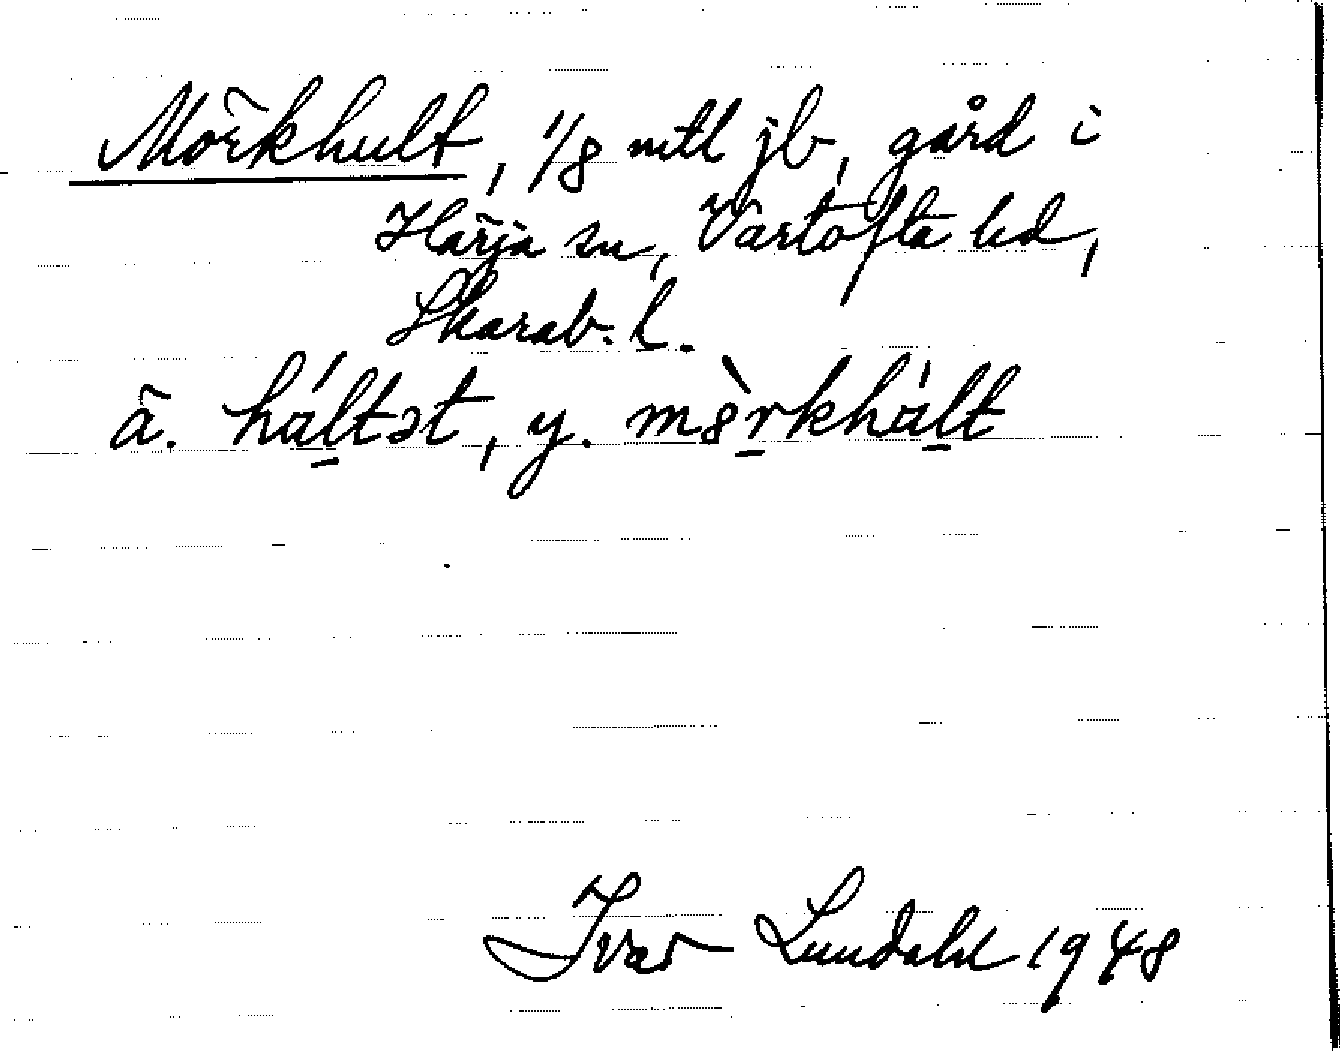 Mörkhult, 1/8 mtl jb, gård i
Härja sn, Vartofta hd,
Skarab. l.
ä. háltət, y. mèrkhàlt
Ivar Lundahl 1948